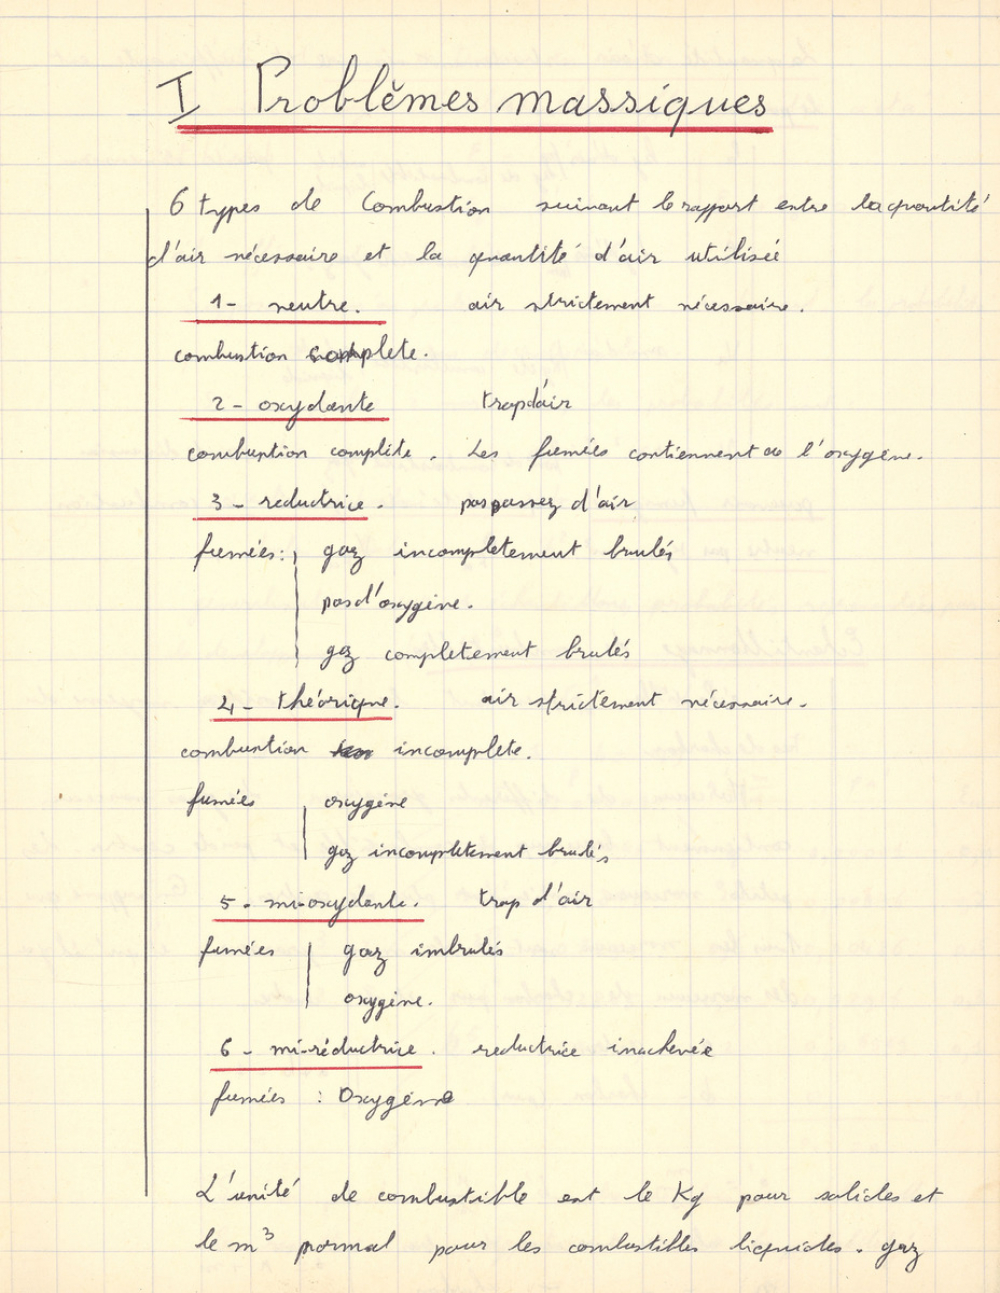 I Problèmes massiques
6 types de combustion suivant le rapport entre la quantité
d'air nécessaire et la quantité d'air utilisée
1- neutre. air strictement nécessaire.
combustion complete.
2- oxydante trop d'air
combustion complète. Les fumées contiennent de l'oxygène.
3- reductrice. pas assez d'air
fumées: gaz incomplètement brulés
pas d'oxygène.
gaz completement brulés
4- théorique. air strictement nécessaire.
combustion incomplete.
fumées oxygène
gaz incomplètement brulés
5- mi-oxydante. trop d'air
fumées gaz imbrulés
oxygène.
6- mi-réductrice. reductrice inachevée
fumées : Oxygène
L'unité de combustible est le Kg pour solides et
le m³ normal pour les combustibles liquides. gaz